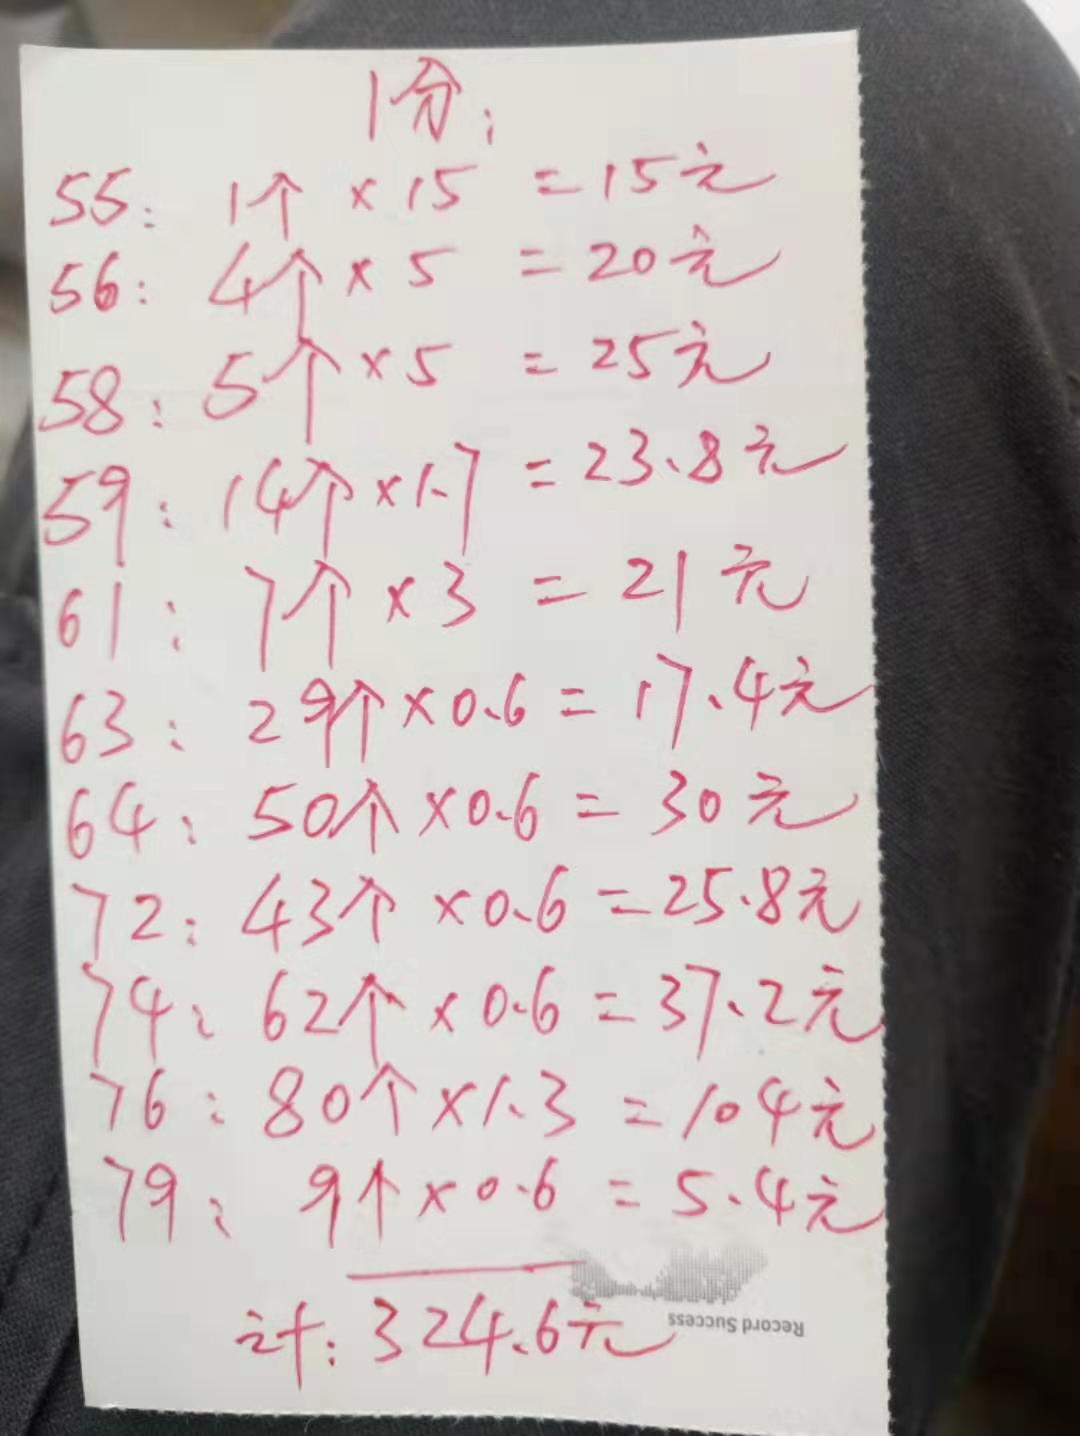 1分：
55：1个×15=15元
56：4个×5=20元
58：5个×5=25元
59：14个×1.7=23.8元
61：7个×3=21元
63：29个×0.6=17.4元
64：50个×0.6=30元
72：43个×0.6=25.8元
74：62个×0.6=37.2元
76：80个×1.3=104元
79：9个×0.6=5.4元
计：324.6元
Record Success